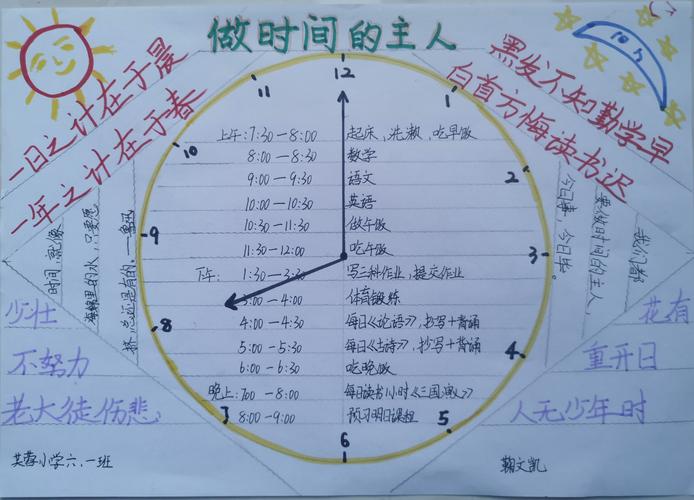 做时间的主人
10h
一日之计在于晨
一年之计在于春
黑发不知勤学早
白首方悔读书迟
12
1
2
3
4
5
6
7
8
9
10
11
上午:7:30—8:00 起床、洗漱、吃早饭
8:00—8:30 数学
9:00—9:30 语文
10:00—10:30 英语
10:30—11:30 做午饭
11:30—12:00 吃午饭
下午:1:30—3:30 写三科作业,提交作业
3:00—4:00 体育锻炼
4:00—4:30 每日《论语》,抄写+背诵
5:00—5:30 每日《古诗》,抄写+背诵
6:00—6:30 吃晚饭
晚上:7:00—8:00 每日读书1小时《三国演义》
8:00—9:00 预习明日课程
时间就像
海绵里的水,只要愿
挤,总还是有的。——鲁迅
我们都
要做时间的主人,
今日事,今日毕。
少壮
不努力
老大徒伤悲
花有
重开日
人无少年时
芙蓉小学六、一班
鞠文凯